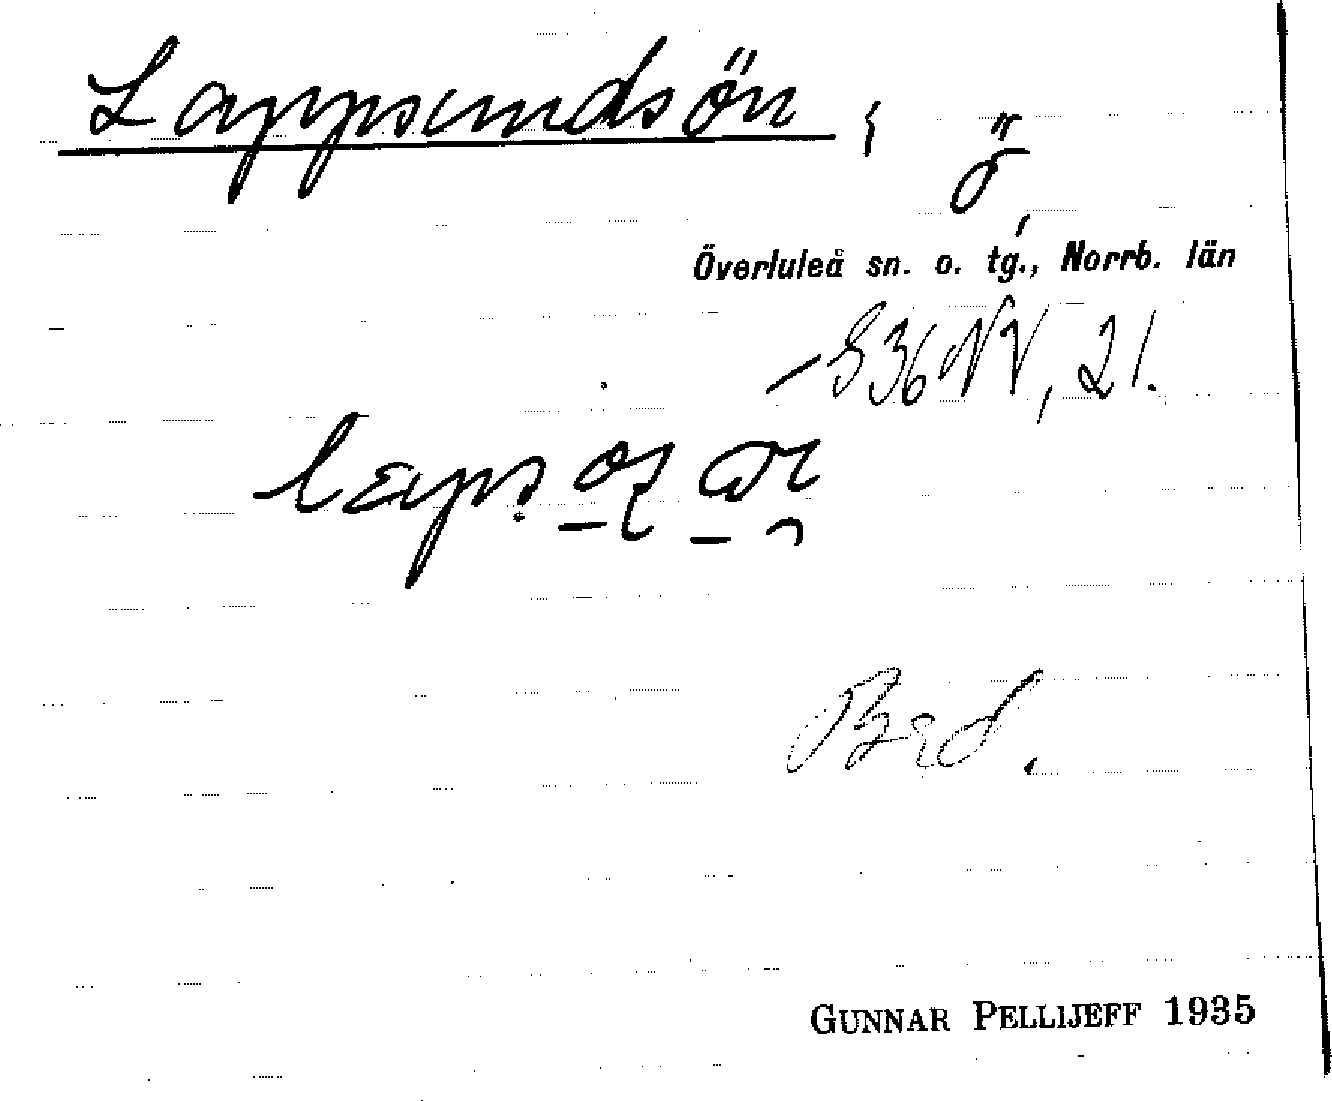 Lappsundsön, ö,
Överluleå sn. o. tg., Norrb. län
S36NV, 21.
Bed.
GUNNAR PELLIJEFF 1935